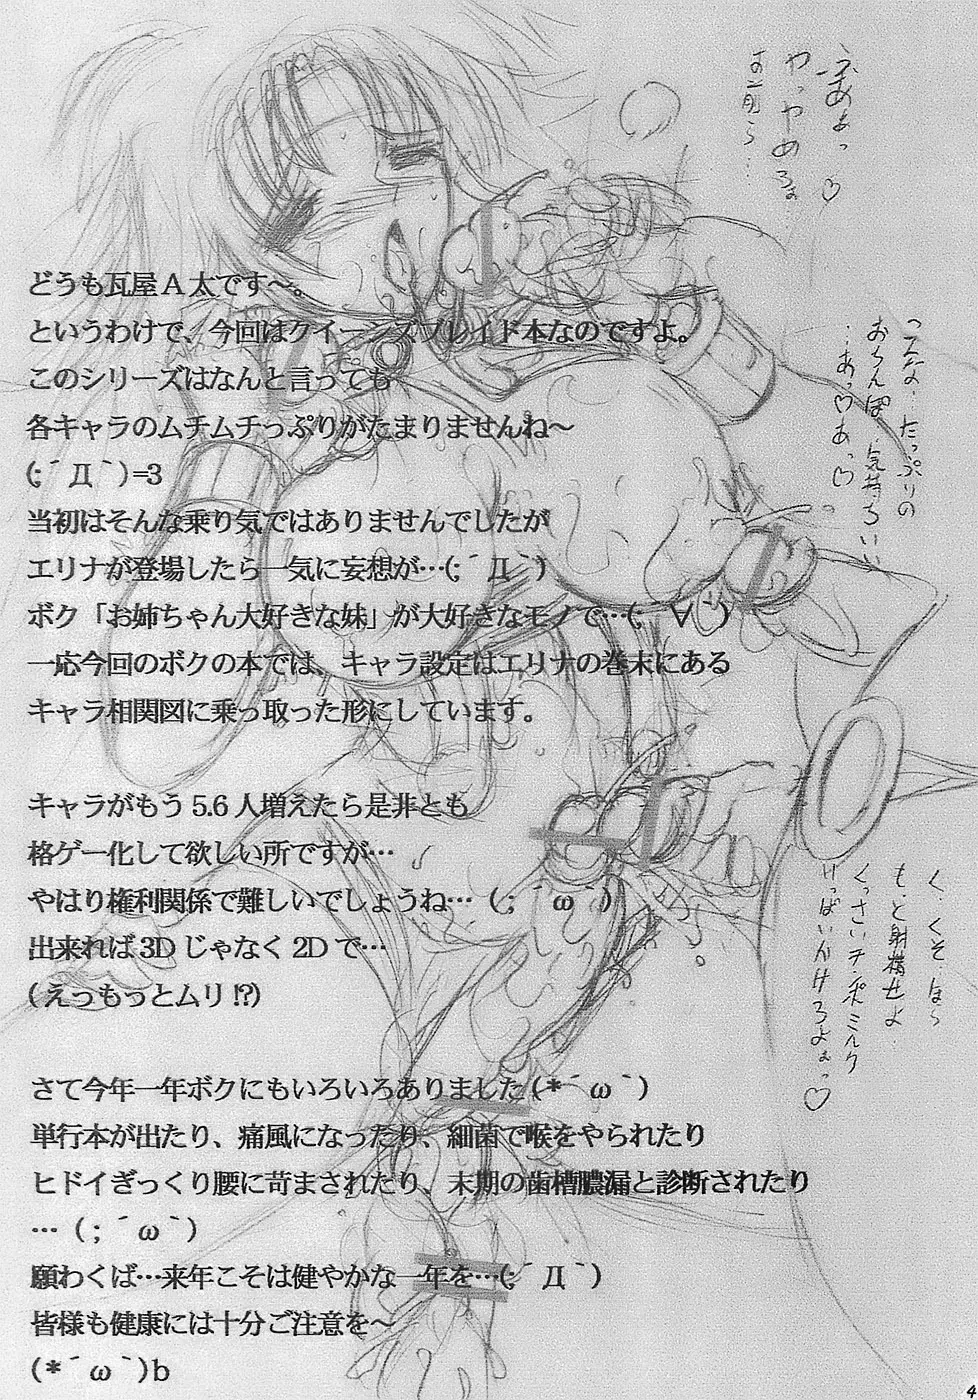 どうも瓦屋A太です~。
というわけで、今回はクイーンズブレイド本なのですよ。
このシリーズはなんと言っても
各キャラのムチムチっぷりがたまりませんね~
(;´Д｀)=3
当初はそんな乗り気ではありませんでしたが
エリナが登場したら一気に妄想が…(;´Д｀)
ボク「お姉ちゃん大好きな妹」が大好きなモノで…(;´∀｀)
一応今回のボクの本では、キャラ設定はエリナの巻末にある
キャラ相関図に乗っ取った形にしています。
キャラがもう5.6人増えたら是非とも
格ゲー化して欲しい所ですが…
やはり権利関係で難しいでしょうね…(;´ω｀)
出来れば3Dじゃなく2Dで…
(えっもっとムリ!?)
さて今年一年ボクにもいろいろありました(*´ω｀)
単行本が出たり、痛風になったり、細菌で喉をやられたり
ヒドイぎっくり腰に苛まされたり、末期の歯槽膿漏と診断されたり
…(;´ω｀)
願わくば…来年こそは健やかな一年を…(;´Д｀)
皆様も健康には十分ご注意を~
(*´ω｀)b
ふあぁっ♡
やっやめろぉ
お前ら…
こんな、たっぷりの
おちんぽ、気持ちいい
…あっ♡あっ♡
く、くそ、ほら
もっと射精せよ
くっさいチンポミルク
いっぱいかけろよぉっ♡
4